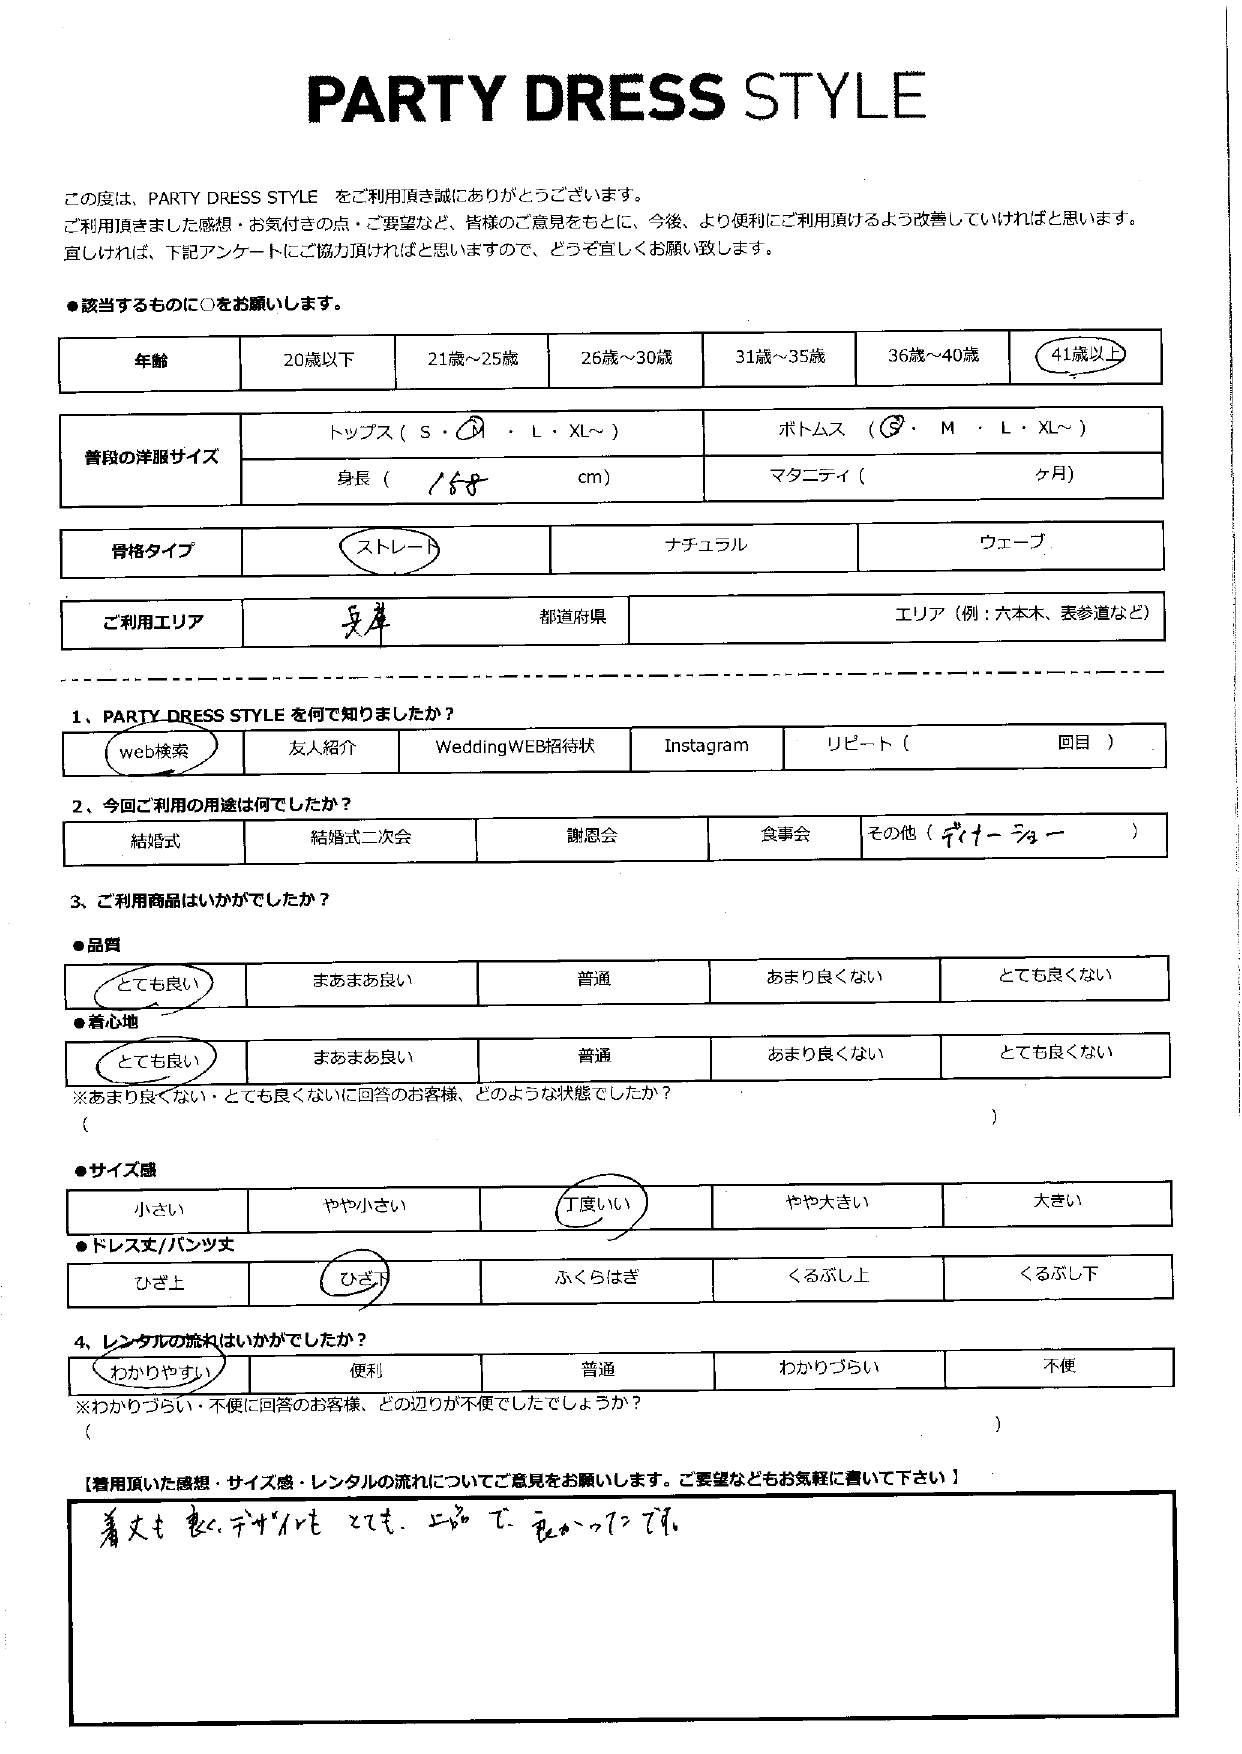 PARTY DRESS STYLE
この度は、PARTY DRESS STYLE をご利用頂き誠にありがとうございます。
ご利用頂きました感想・お気付きの点・ご要望など、皆様のご意見をもとに、今後、より便利にご利用頂けるよう改善していければと思います。
宜しければ、下記アンケートにご協力頂ければと思いますので、どうぞ宜しくお願い致します。
●該当するものに○をお願いします。
年齢 20歳以下 21歳～25歳 26歳～30歳 31歳～35歳 36歳～40歳 41歳以上
普段の洋服サイズ
トップス ( S ・ M ・ L ・ XL～ ) ボトムス ( S ・ M ・ L ・ XL～ )
身長 ( 158 cm) マタニティ ( ケ月)
骨格タイプ ストレート ナチュラル ウェーブ
ご利用エリア 兵庫 都道府県 エリア（例：六本木、表参道など）
1、PARTY DRESS STYLE を何で知りましたか？
web検索 友人紹介 WeddingWEB招待状 Instagram リピート ( 回目 )
2、今回ご利用の用途は何でしたか？
結婚式 結婚式二次会 謝恩会 食事会 その他 ( ディナーショー )
3、ご利用商品はいかがでしたか？
●品質
とても良い まあまあ良い 普通 あまり良くない とても良くない
●着心地
とても良い まあまあ良い 普通 あまり良くない とても良くない
※あまり良くない・とても良くないに回答のお客様、どのような状態でしたか？
( )
●サイズ感
小さい やや小さい 丁度いい やや大きい 大きい
●ドレス丈/パンツ丈
ひざ上 ひざ下 ふくらはぎ くるぶし上 くるぶし下
4、レンタルの流れはいかがでしたか？
わかりやすい 便利 普通 わかりづらい 不便
※わかりづらい・不便に回答のお客様、どの辺りが不便でしたでしょうか？
( )
【着用頂いた感想・サイズ感・レンタルの流れについてご意見をお願いします。ご要望などもお気軽に書いて下さい】
着丈も良く、デザインもとても、上品で、良かったです。